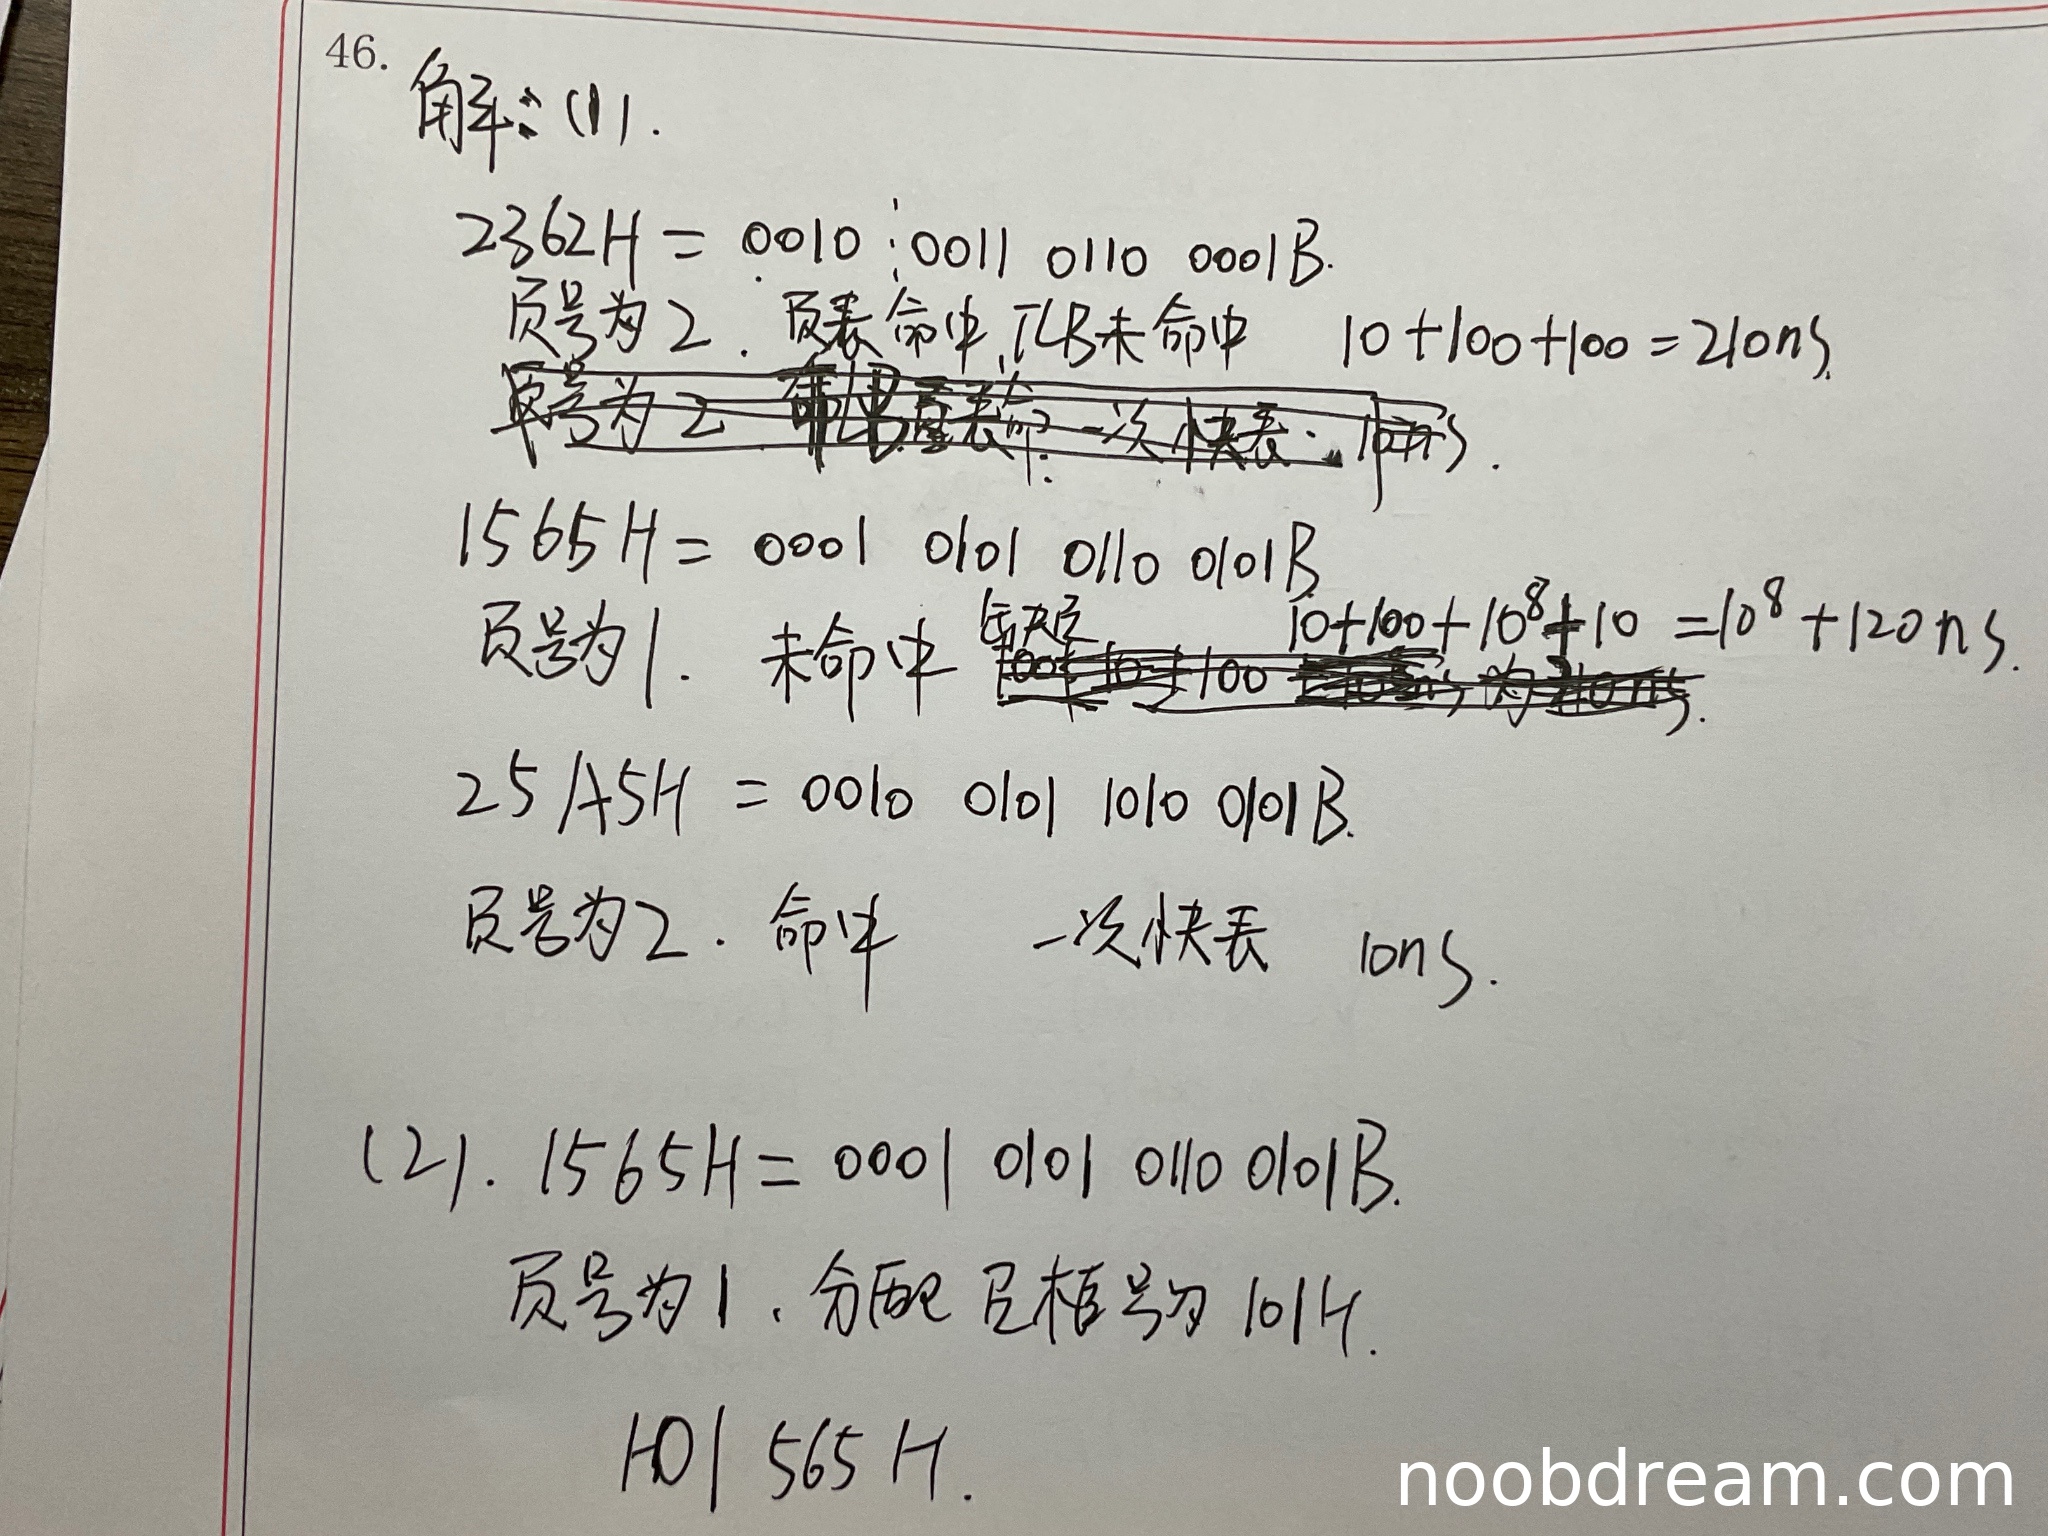 46.
解:(1).
2362H = 0010 0011 0110 0001B.
页号为2. 页表命中,TLB未命中 10+100+100=210ns.
页号为2 一次快表. 10ns.
1565H = 0001 0101 0110 0101B
页号为1. 未命中 缺页 10+100+10⁸+10 =10⁸+120ns.
25A5H = 0010 0101 1010 0101B.
页号为2. 命中 一次快表 10ns.
(2). 1565H = 0001 0101 0110 0101B.
页号为1. 分配页框号为101H.
101 565H.
noobdream.com